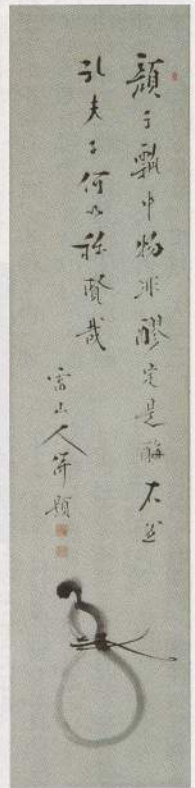 顔子瓢中物非醪定是酶不然
孔夫子何以称賢哉
雷山人併題